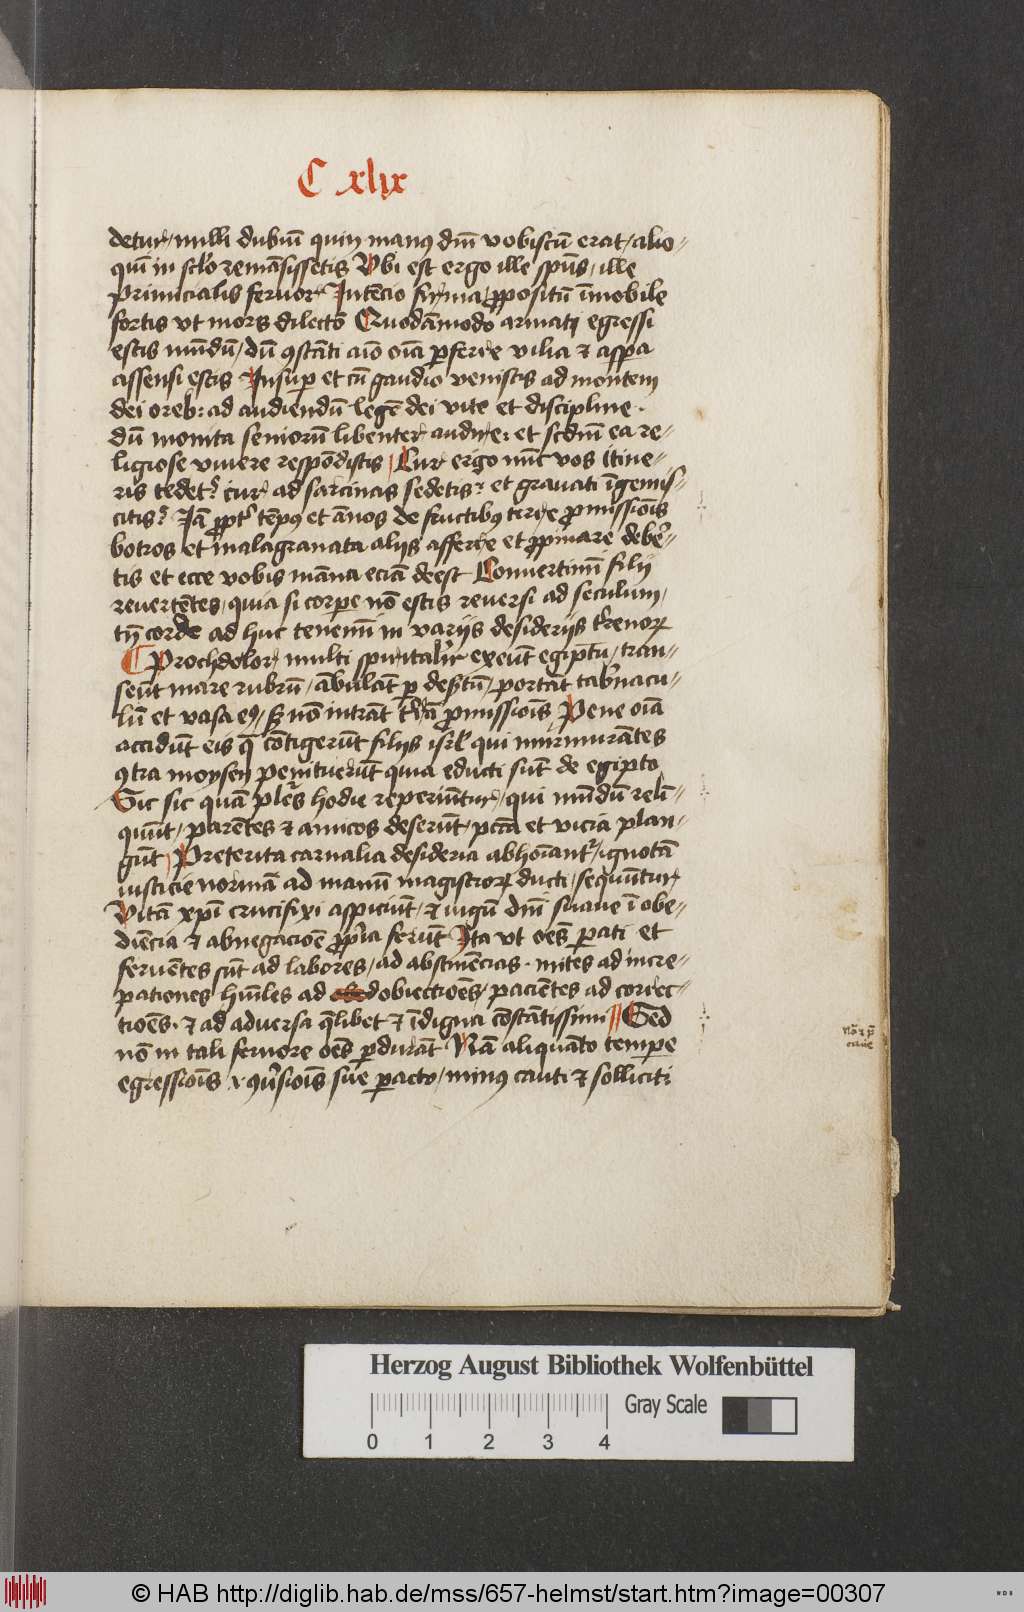 C xlix
detur / nulli dubiū quin manꝰ dn̄i vobiscū erat / alio-
quī in scl'o remāsissetis Vbi est ergo ille spūs / ille
Primicialis feruor Intēcio firma / ꝓpositū īmobile
fortis vt mors dilectō Quodāmodo armati egressi
estis mūdū / dū ꝯstāti aīo oīa ꝑferre vilia ⁊ asꝑa
assensi estis Insuꝑ et cū gaudio venistis ad montem
dei oreb : ad audiendū legē dei vite et discipline .
dū monita seniorū libenter audire : et scdm̄ ea re-
ligiose viuere respōdistis Cur ergo nūc vos itine-
ris tedet ? cur ad sarcinas sedetis ? et grauati īgemis-
citis ? Iā ꝓpt' tēpꝰ et ānos de fructibꝰ terre ꝓmissiōis
botros et malagranata alijs afferre et ꝓpinare debe'-
tis et ecce vobis māna eciā deest Conuertimī filij
reuertētes / quia si corpe nō estis reuersi ad seculum /
tn̄ corde ad huc tenemī in varijs desiderijs t'renoꝝ
Prochdolor / multi spiritalit' exeūt egiptū / tran-
seūt mare rubrū / ābulāt ꝑ des'tū / portāt tab'nacu-
lū et vasa eꝰ / sꝫ nō intrāt t'rā ꝓmissiōis Pene oīa
accidūt eis q̄ cōtigerūt filijs isrl' qui murmurātes
ꝯtra moysen penituerūt quia educti sūt de egipto
Sic sic quā pl'es hodie reperiūtur / qui mūdū relī-
quūt / parētes ⁊ amicos deserūt / pccā et vicia plan-
gūt / Preterita carnalia desideria abhoīant' / ignotā
iusticie normā ad manū magistroꝝ ducti / sequūtur
Vitā xp̄i crucifixi aspiciūt / ⁊ iugū dn̄i suaue ī obe-
diēcia ⁊ abnegacioē ꝓpria ferūt Ita vt oēs ꝑati et
feruētes sūt ad labores / ad abstinēcias . mites ad incre-
pationes hūiles ad obiectioēs / paciētes ad correc-
tioēs . ⁊ ad aduersa q̄libet ⁊ īdigna cōstātissimi Sed
nō in tali feruore oēs ꝑdurāt Nā aliquāto tempe
egressiōis ⁊ ꝯu'siōis sue ꝑacto / minꝰ cauti ⁊ solliciti
Herzog August Bibliothek Wolfenbüttel
Gray Scale
0 1 2 3 4
© HAB http://diglib.hab.de/mss/657-helmst/start.htm?image=00307